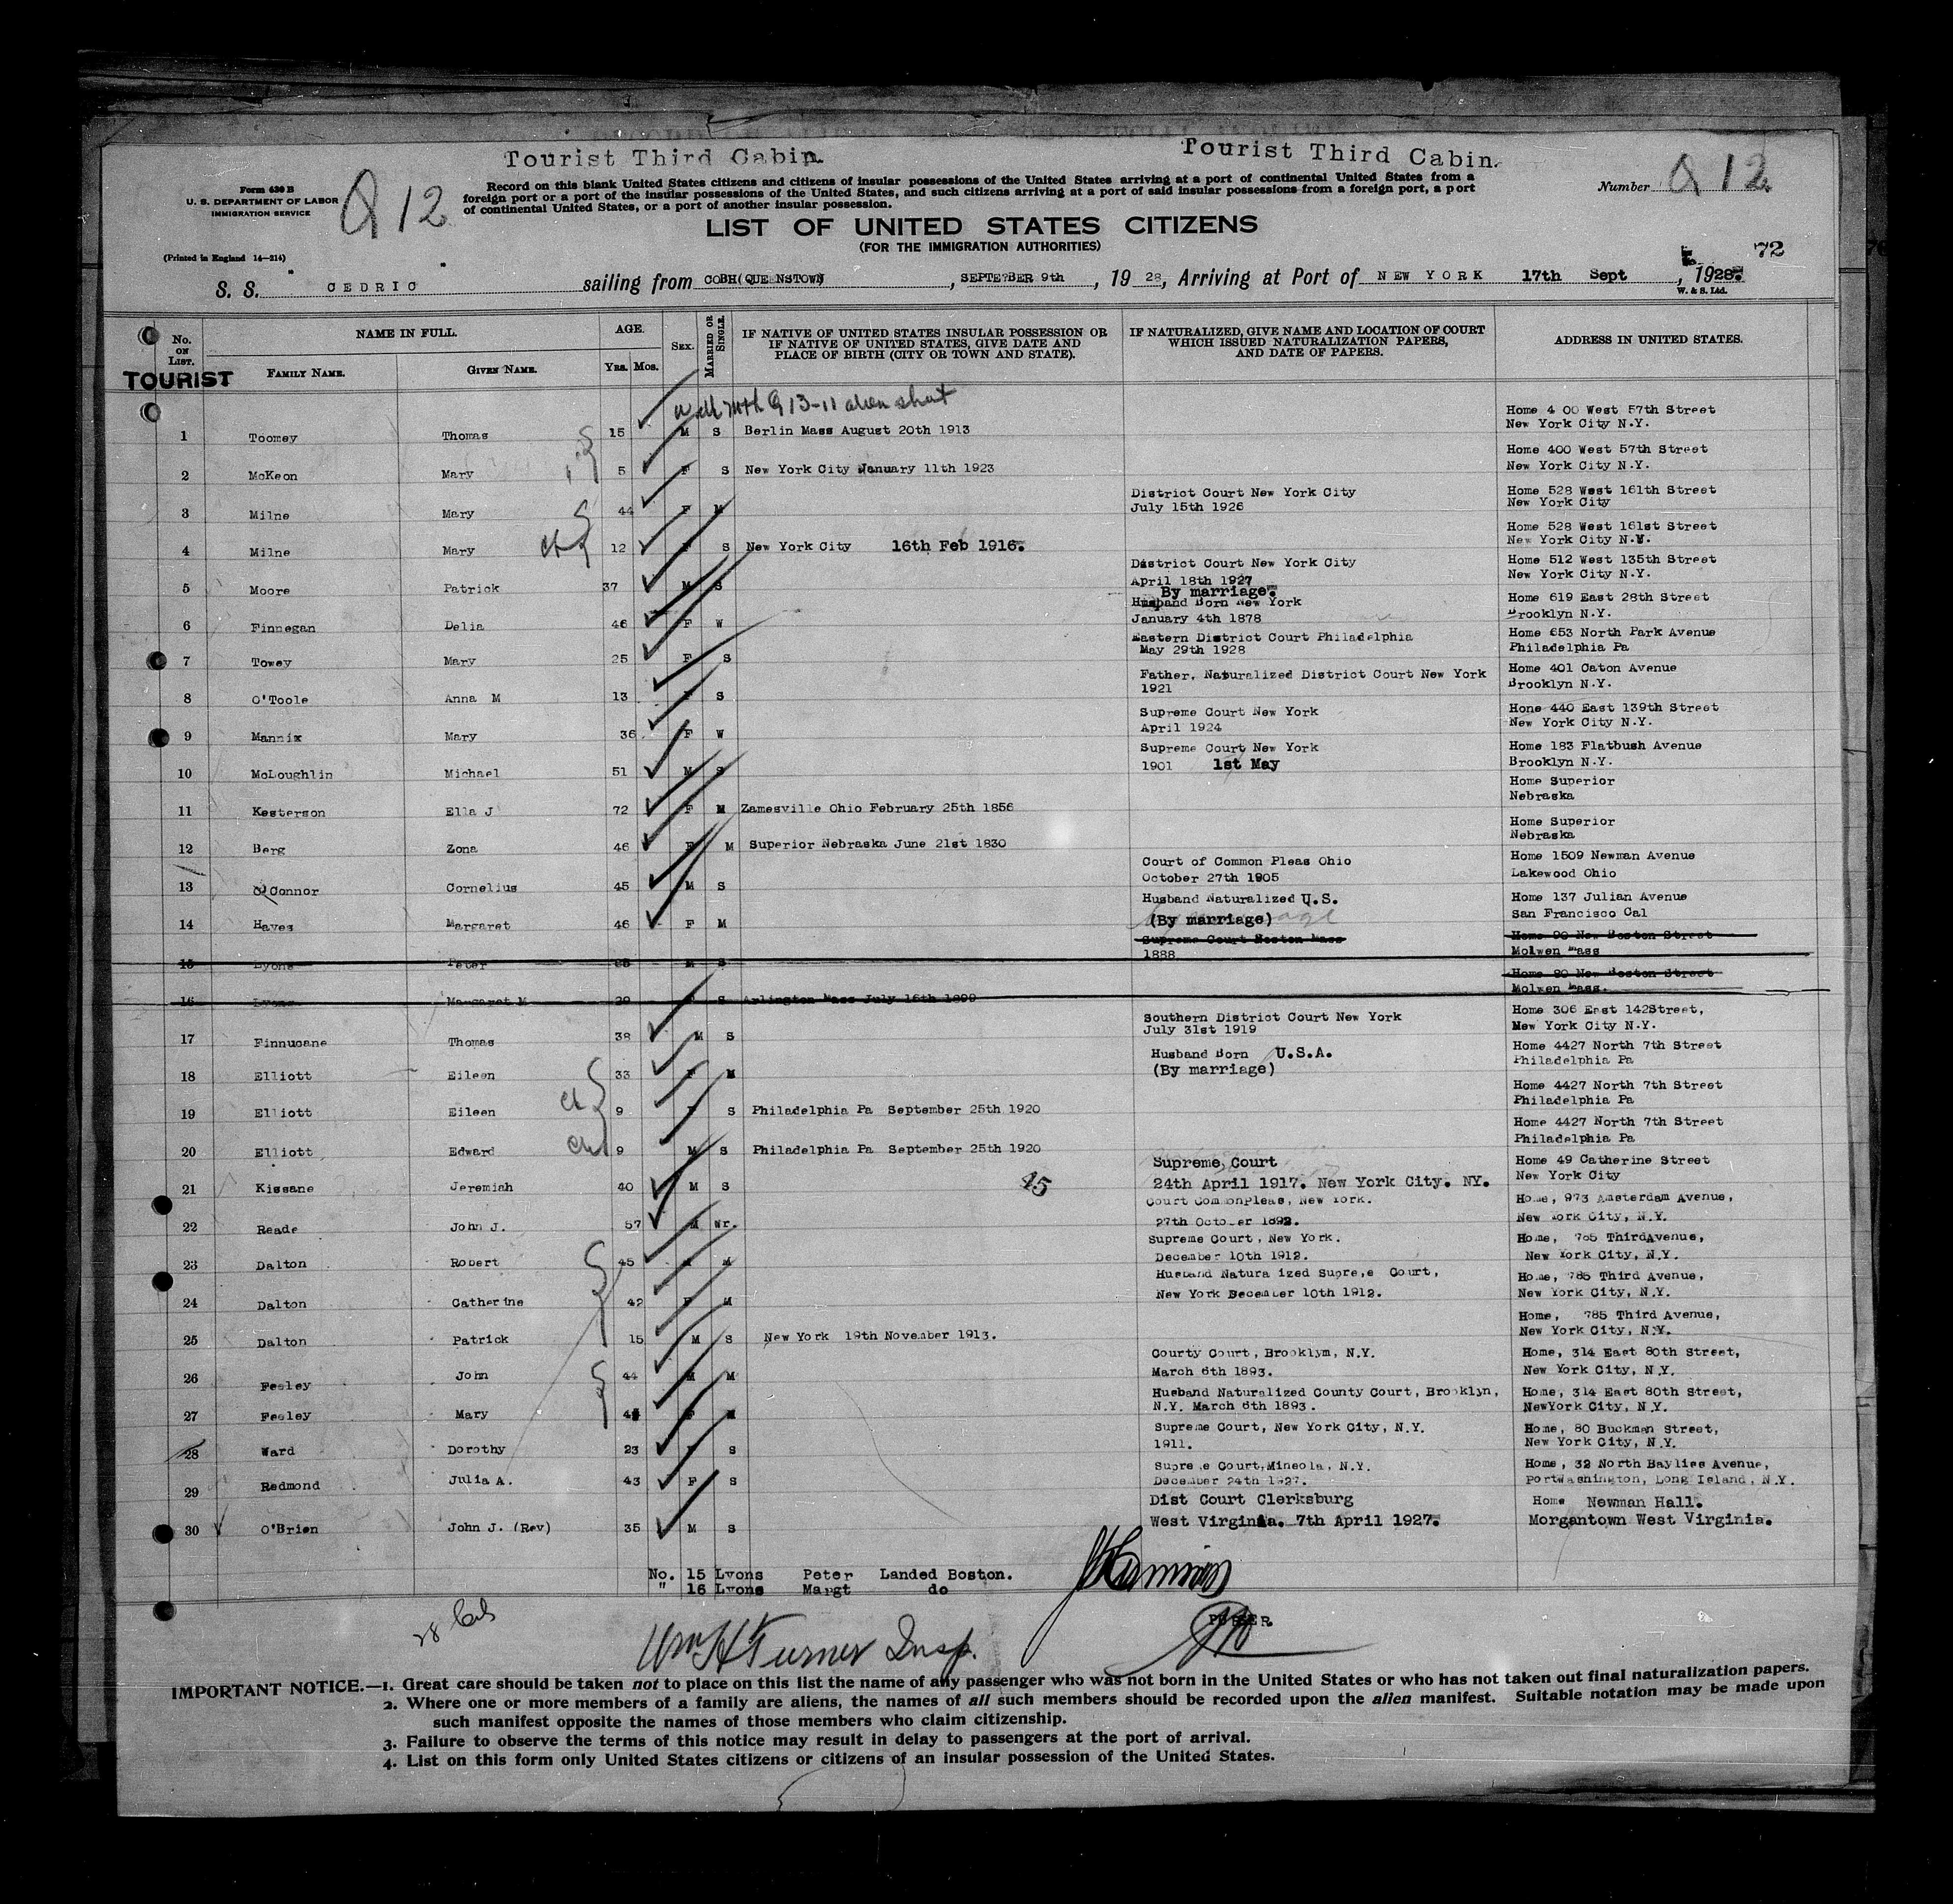 Tourist Third Cabin.
Tourist Third Cabin.
Form 630 B
U. S. DEPARTMENT OF LABOR
IMMIGRATION SERVICE
Q 12
Record on this blank United States citizens and citizens of insular possessions of the United States arriving at a port of continental United States from a
foreign port or a port of the insular possessions of the United States, and such citizens arriving at a port of said insular possessions from a foreign port, a port
of continental United States, or a port of another insular possession.
Number Q 12
LIST OF UNITED STATES CITIZENS
(FOR THE IMMIGRATION AUTHORITIES)
(Printed in England 14—214)
72
S. S. CEDRIC sailing from COBH(QUEENSTOWN) , SEPTEMBER 9th , 19 28, Arriving at Port of NEW YORK 17th Sept , 1928.
W. & S. Ltd.
No. ON LIST. NAME IN FULL. AGE. SEX. MARRIED OR SINGLE. IF NATIVE OF UNITED STATES INSULAR POSSESSION OR IF NATIVE OF UNITED STATES, GIVE DATE AND PLACE OF BIRTH (CITY OR TOWN AND STATE). IF NATURALIZED, GIVE NAME AND LOCATION OF COURT WHICH ISSUED NATURALIZATION PAPERS, AND DATE OF PAPERS. ADDRESS IN UNITED STATES.
TOURIST FAMILY NAME. GIVEN NAME. YRS. MOS.
Q 13-11 alien sheet
1 Toomey Thomas 15 M S Berlin Mass August 20th 1913 Home 4 00 West 57th Street New York City N.Y.
2 McKeon Mary 5 F S New York City January 11th 1923 Home 400 West 57th Street New York City N.Y.
3 Milne Mary 44 F M District Court New York City July 15th 1926 Home 528 West 161th Street New York City
4 Milne Mary 12 F S New York City 16th Feb 1916. Home 528 West 161st Street New York City N.Y.
5 Moore Patrick 37 M S District Court New York City April 18th 1927 Home 512 West 135th Street New York City N.Y.
6 Finnegan Delia 46 F W By marriage. Husband Born New York January 4th 1878 Home 619 East 28th Street Brooklyn N.Y.
7 Towey Mary 25 F S Eastern District Court Philadelphia May 29th 1928 Home 653 North Park Avenue Philadelphia Pa
8 O'Toole Anna M 13 F S Father, Naturalized District Court New York 1921 Home 401 Caton Avenue Brooklyn N.Y.
9 Mannix Mary 36 F W Supreme Court New York April 1924 Hone 440 East 139th Street New York City N.Y.
10 McLoughlin Michael 51 M S Supreme Court New York 1901 1st May Home 183 Flatbush Avenue Brooklyn N.Y.
11 Kesterson Ella J 72 F M Zamesville Ohio February 25th 1856 Home Superior Nebraska
12 Berg Zona 46 F M Superior Nebraska June 21st 1830 Home Superior Nebraska
13 O'Connor Cornelius 45 M S Court of Common Pleas Ohio October 27th 1905 Home 1509 Newman Avenue Lakewood Ohio
14 Hayes Margaret 46 F M Husband Naturalized U.S. (By marriage) Home 137 Julian Avenue San Francisco Cal
15 Lyons Peter M S Supreme Court Boston Mass 1888 Home 90 New Boston Street Molwen Mass
16 Lyons Margaret M 29 F S Arlington Mass July 16th 1899 Home 90 New Boston Street Molwen Mass.
17 Finnucane Thomas 38 M S Southern District Court New York July 31st 1919 Home 306 East 142Street, New York City N.Y.
18 Elliott Eileen 33 F M Husband Born U.S.A. (By marriage) Home 4427 North 7th Street Philadelphia Pa
19 Elliott Eileen 9 F S Philadelphia Pa September 25th 1920 Home 4427 North 7th Street Philadelphia Pa
20 Elliott Edward 9 M S Philadelphia Pa September 25th 1920 Home 4427 North 7th Street Philadelphia Pa
21 Kissane Jeremiah 40 M S 45 Supreme Court 24th April 1917. New York City. NY. Home 49 Catherine Street New York City
22 Reade John J. 57 M Wr. Court CommonPleas, New York. 27th October 1892. Home, 973 Amsterdam Avenue, New York City, N.Y.
23 Dalton Robert 45 M M Supreme Court, New York. December 10th 1912. Home, 785 ThirdAvenue, New York City, N.Y.
24 Dalton Catherine 42 F M Husband Naturalized Supreme Court, New York December 10th 1912. Home, 785 Third Avenue, New York City, N.Y.
25 Dalton Patrick 15 M S New York 19th November 1913. Home, 785 Third Avenue, New York City, N.Y.
26 Feeley John 44 M M Courty Court, Brooklym, N.Y. March 6th 1893. Home, 314 East 80th Street, New York City, N.Y.
27 Feeley Mary F M Husband Naturalized County Court, Brooklyn, N.Y. March 6th 1893. Home, 314 East 80th Street, NewYork City, N.Y.
28 Ward Dorothy 23 F S Supreme Court, New York City, N.Y. 1911. Home, 80 Buckman Street, New York City, N.Y.
29 Redmond Julia A. 43 F S Supreme Court,Mineola, N.Y. December 24th 1927. Home, 32 North Bayliss Avenue, Portwashington, Long Island, N.Y.
30 O'Brien John J. (Rev) 35 M S Dist Court Clerksburg West Virginia. 7th April 1927. Home Newman Hall. Morgantown West Virginia.
No. 15 Lyons Peter Landed Boston.
" 16 Lyons Margt do
PURSER.
Wm H Turner Insp.
IMPORTANT NOTICE.—1. Great care should be taken not to place on this list the name of any passenger who was not born in the United States or who has not taken out final naturalization papers.
2. Where one or more members of a family are aliens, the names of all such members should be recorded upon the alien manifest. Suitable notation may be made upon
such manifest opposite the names of those members who claim citizenship.
3. Failure to observe the terms of this notice may result in delay to passengers at the port of arrival.
4. List on this form only United States citizens or citizens of an insular possession of the United States.